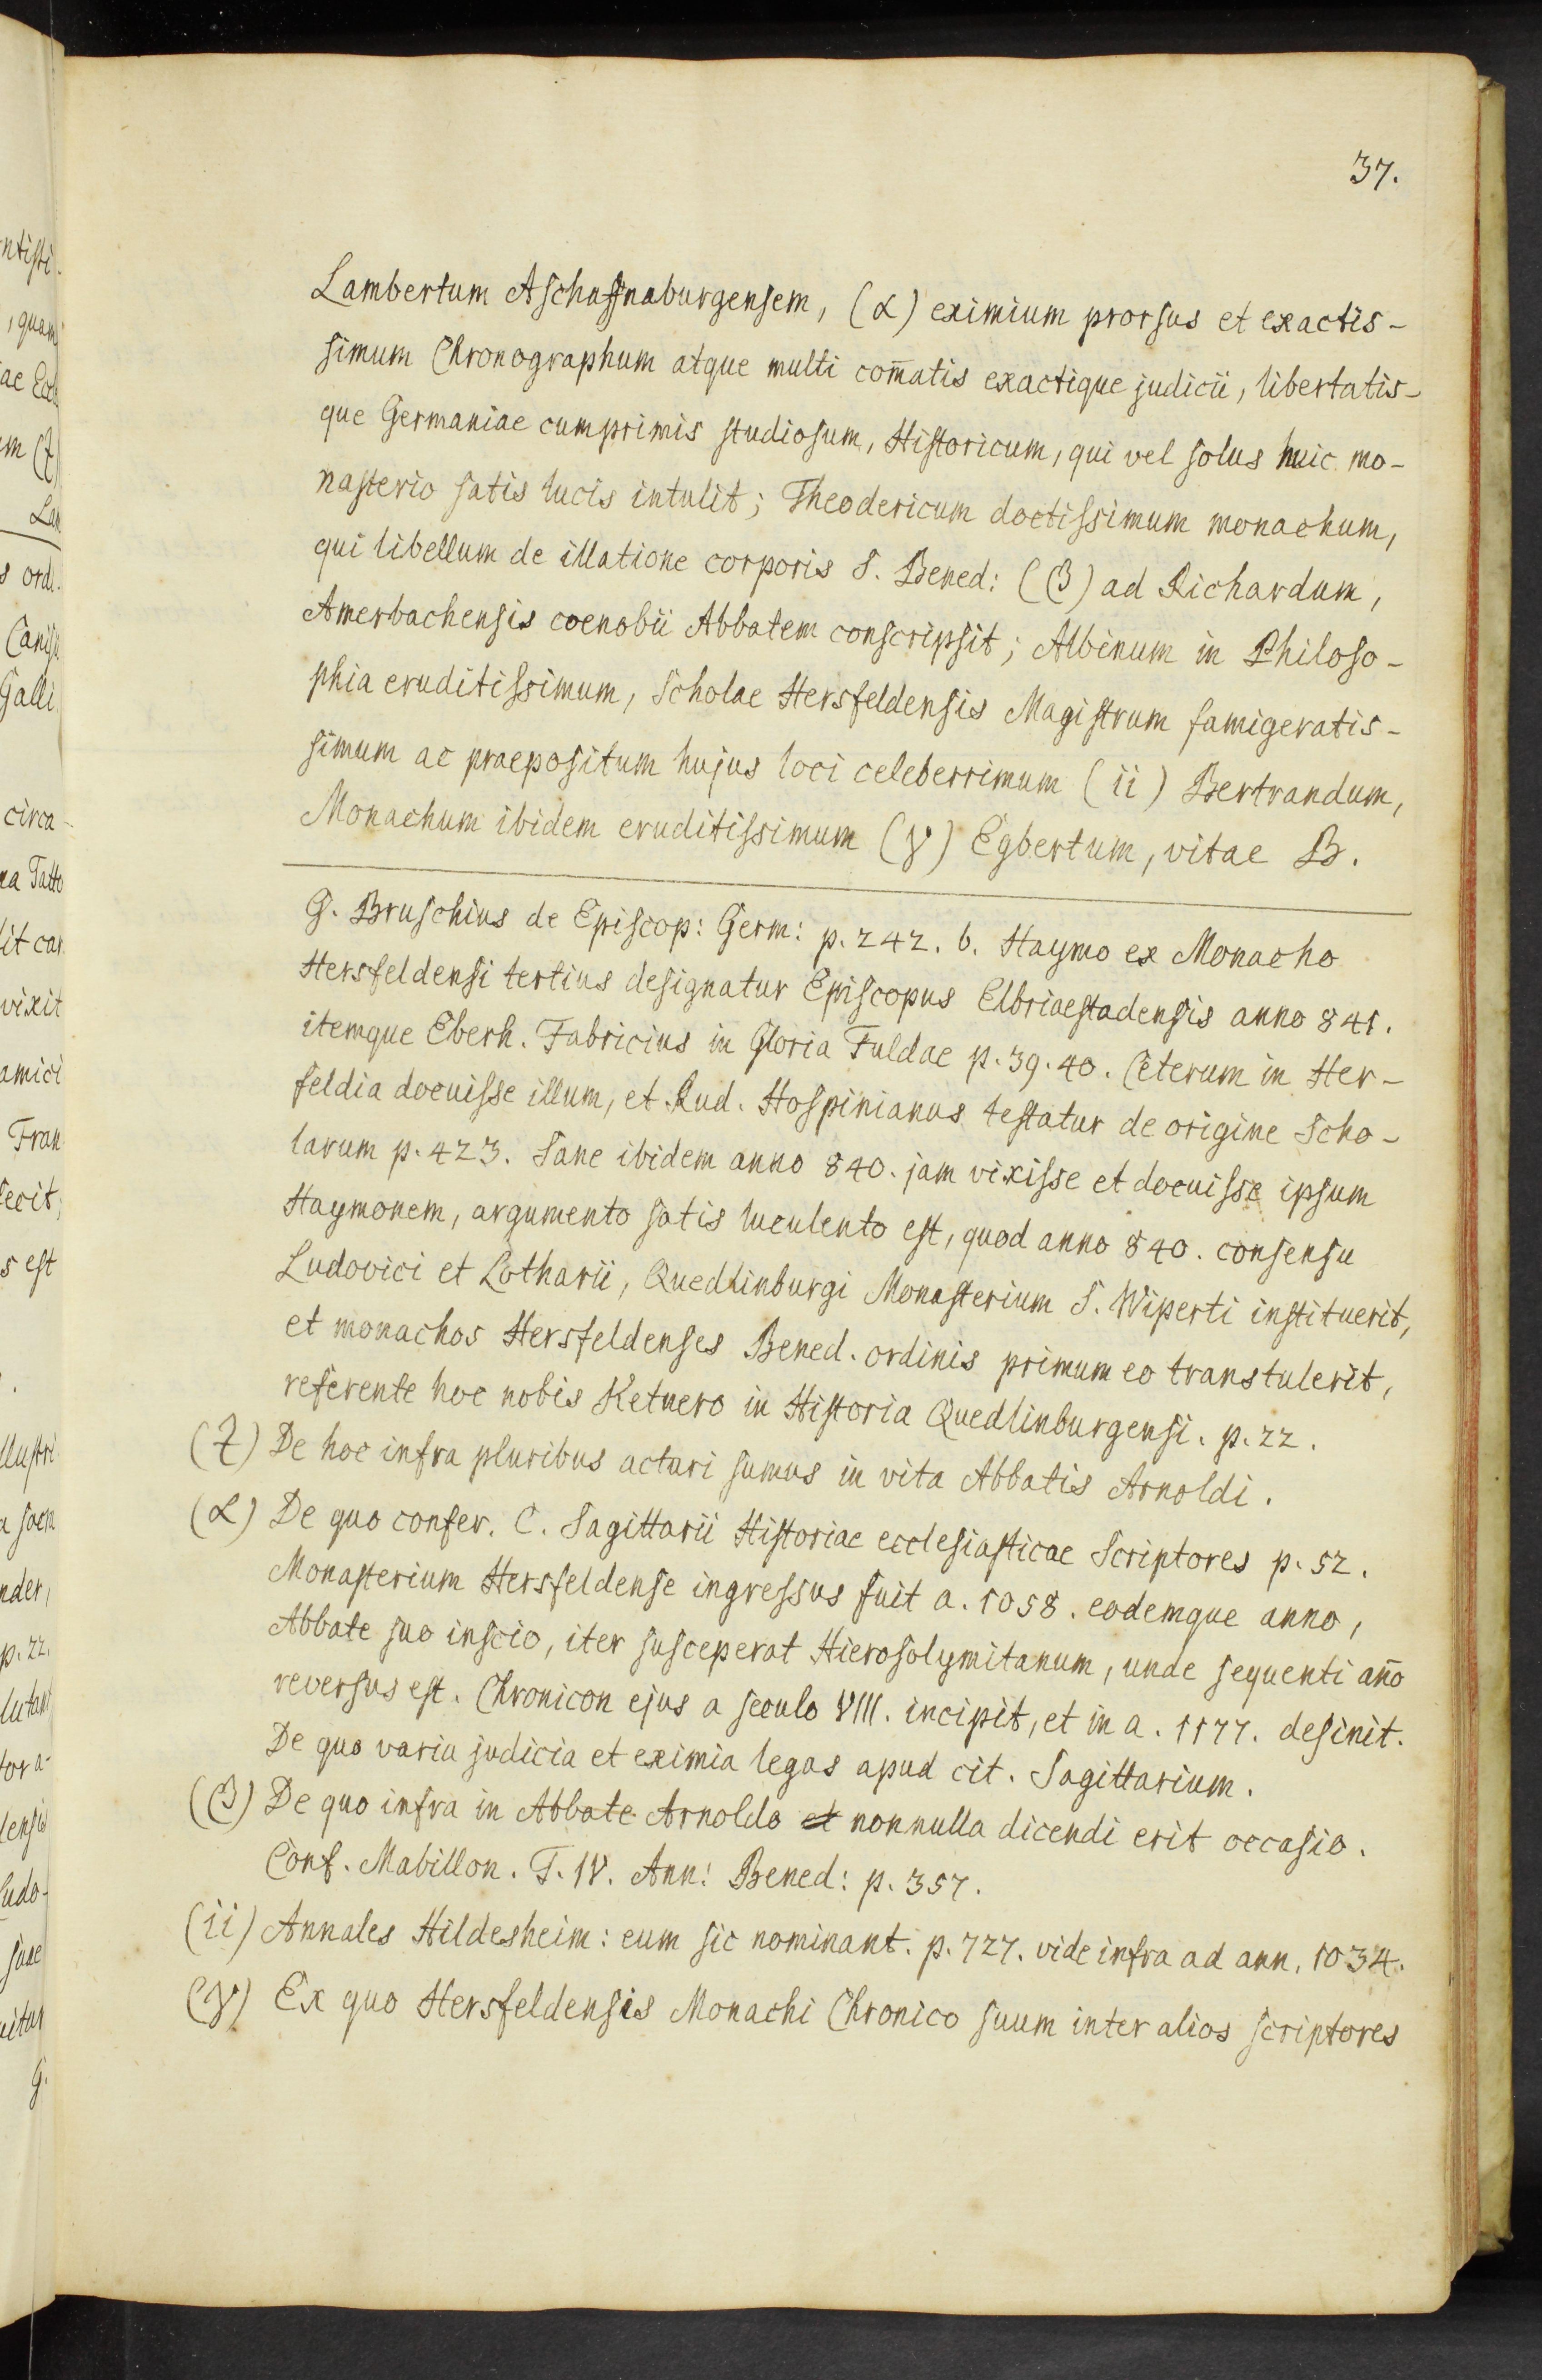 37.
Lambertum Aschaffnaburgensem, (α) eximium prorsus et exactis-
simum Chronographum atque multi com̄atis exactique judicii, libertatis-
que Germaniae cumprimis studiosum, Historicum, qui vel solus huic mo-
nasterio satis lucis intulit; Theodericum doctissimum monachum,
qui libellum de illatione corporis S. Bened: (β) ad Richardum,
Amerbachensis coenobii Abbatem conscripsit; Albinum in Philoso-
phia eruditissimum, Scholae Hersfeldensis Magistrum famigeratis-
simum ac praepositum hujus loci celeberrimum (ii) Bertrandum,
Monachum ibidem eruditissimum (γ) Egbertum, vitae B.
G. Bruschius de Episcop: Germ: p. 242. b. Haymo ex Monacho
Hersfeldensi tertius designatur Episcopus Elbriaestadensis anno 841.
itemque Eberh. Fabricius in Gloria Fuldae p. 39. 40. Ceterum in Her-
feldia docuisse illum, et Rud. Hospinianus testatur de origine Scho-
larum p. 423. Sane ibidem anno 840. jam vixisse et docuisse ipsum
Haymonem, argumento satis luculento est, quod anno 840. consensu
Ludovici et Lotharii, Quedlinburgi Monasterium S. Wiperti instituerit,
et monachos Hersfeldenses Bened. ordinis primum eo transtulerit,
referente hoc nobis Ketnero in Historia Quedlinburgensi. p. 22.
(z) De hoc infra pluribus acturi sumus in vita Abbatis Arnoldi.
(α) De quo confer. C. Sagittarii Historiae ecclesiasticae Scriptores p. 52.
Monasterium Hersfeldense ingressus fuit a. 1058. eodemque anno,
Abbate suo inscio, iter susceperat Hierosolymitanum, unde sequenti an̄o
reversus est. Chronicon ejus a seculo VIII. incipit, et in a. 1177. desinit.
De quo varia judicia et eximia legas apud cit. Sagittarium.
(β) De quo infra in Abbate Arnoldo et nonnulla dicendi erit occasio.
Conf. Mabillon. T. IV. Ann: Bened: p. 357.
(ii) Annales Hildesheim: eum sic nominant. p. 727. vide infra ad ann. 1034.
(γ) Ex quo Hersfeldensis Monachi Chronico suum inter alios scriptores